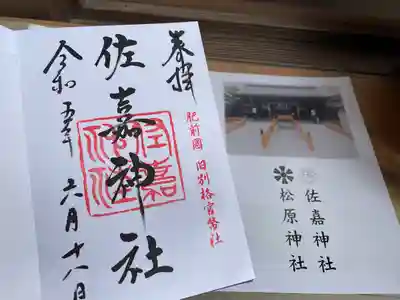 奉拝
肥前國 旧別格官幣社
佐嘉神社
佐嘉神社
令和五年 六月 十八日
佐嘉神社
松原神社